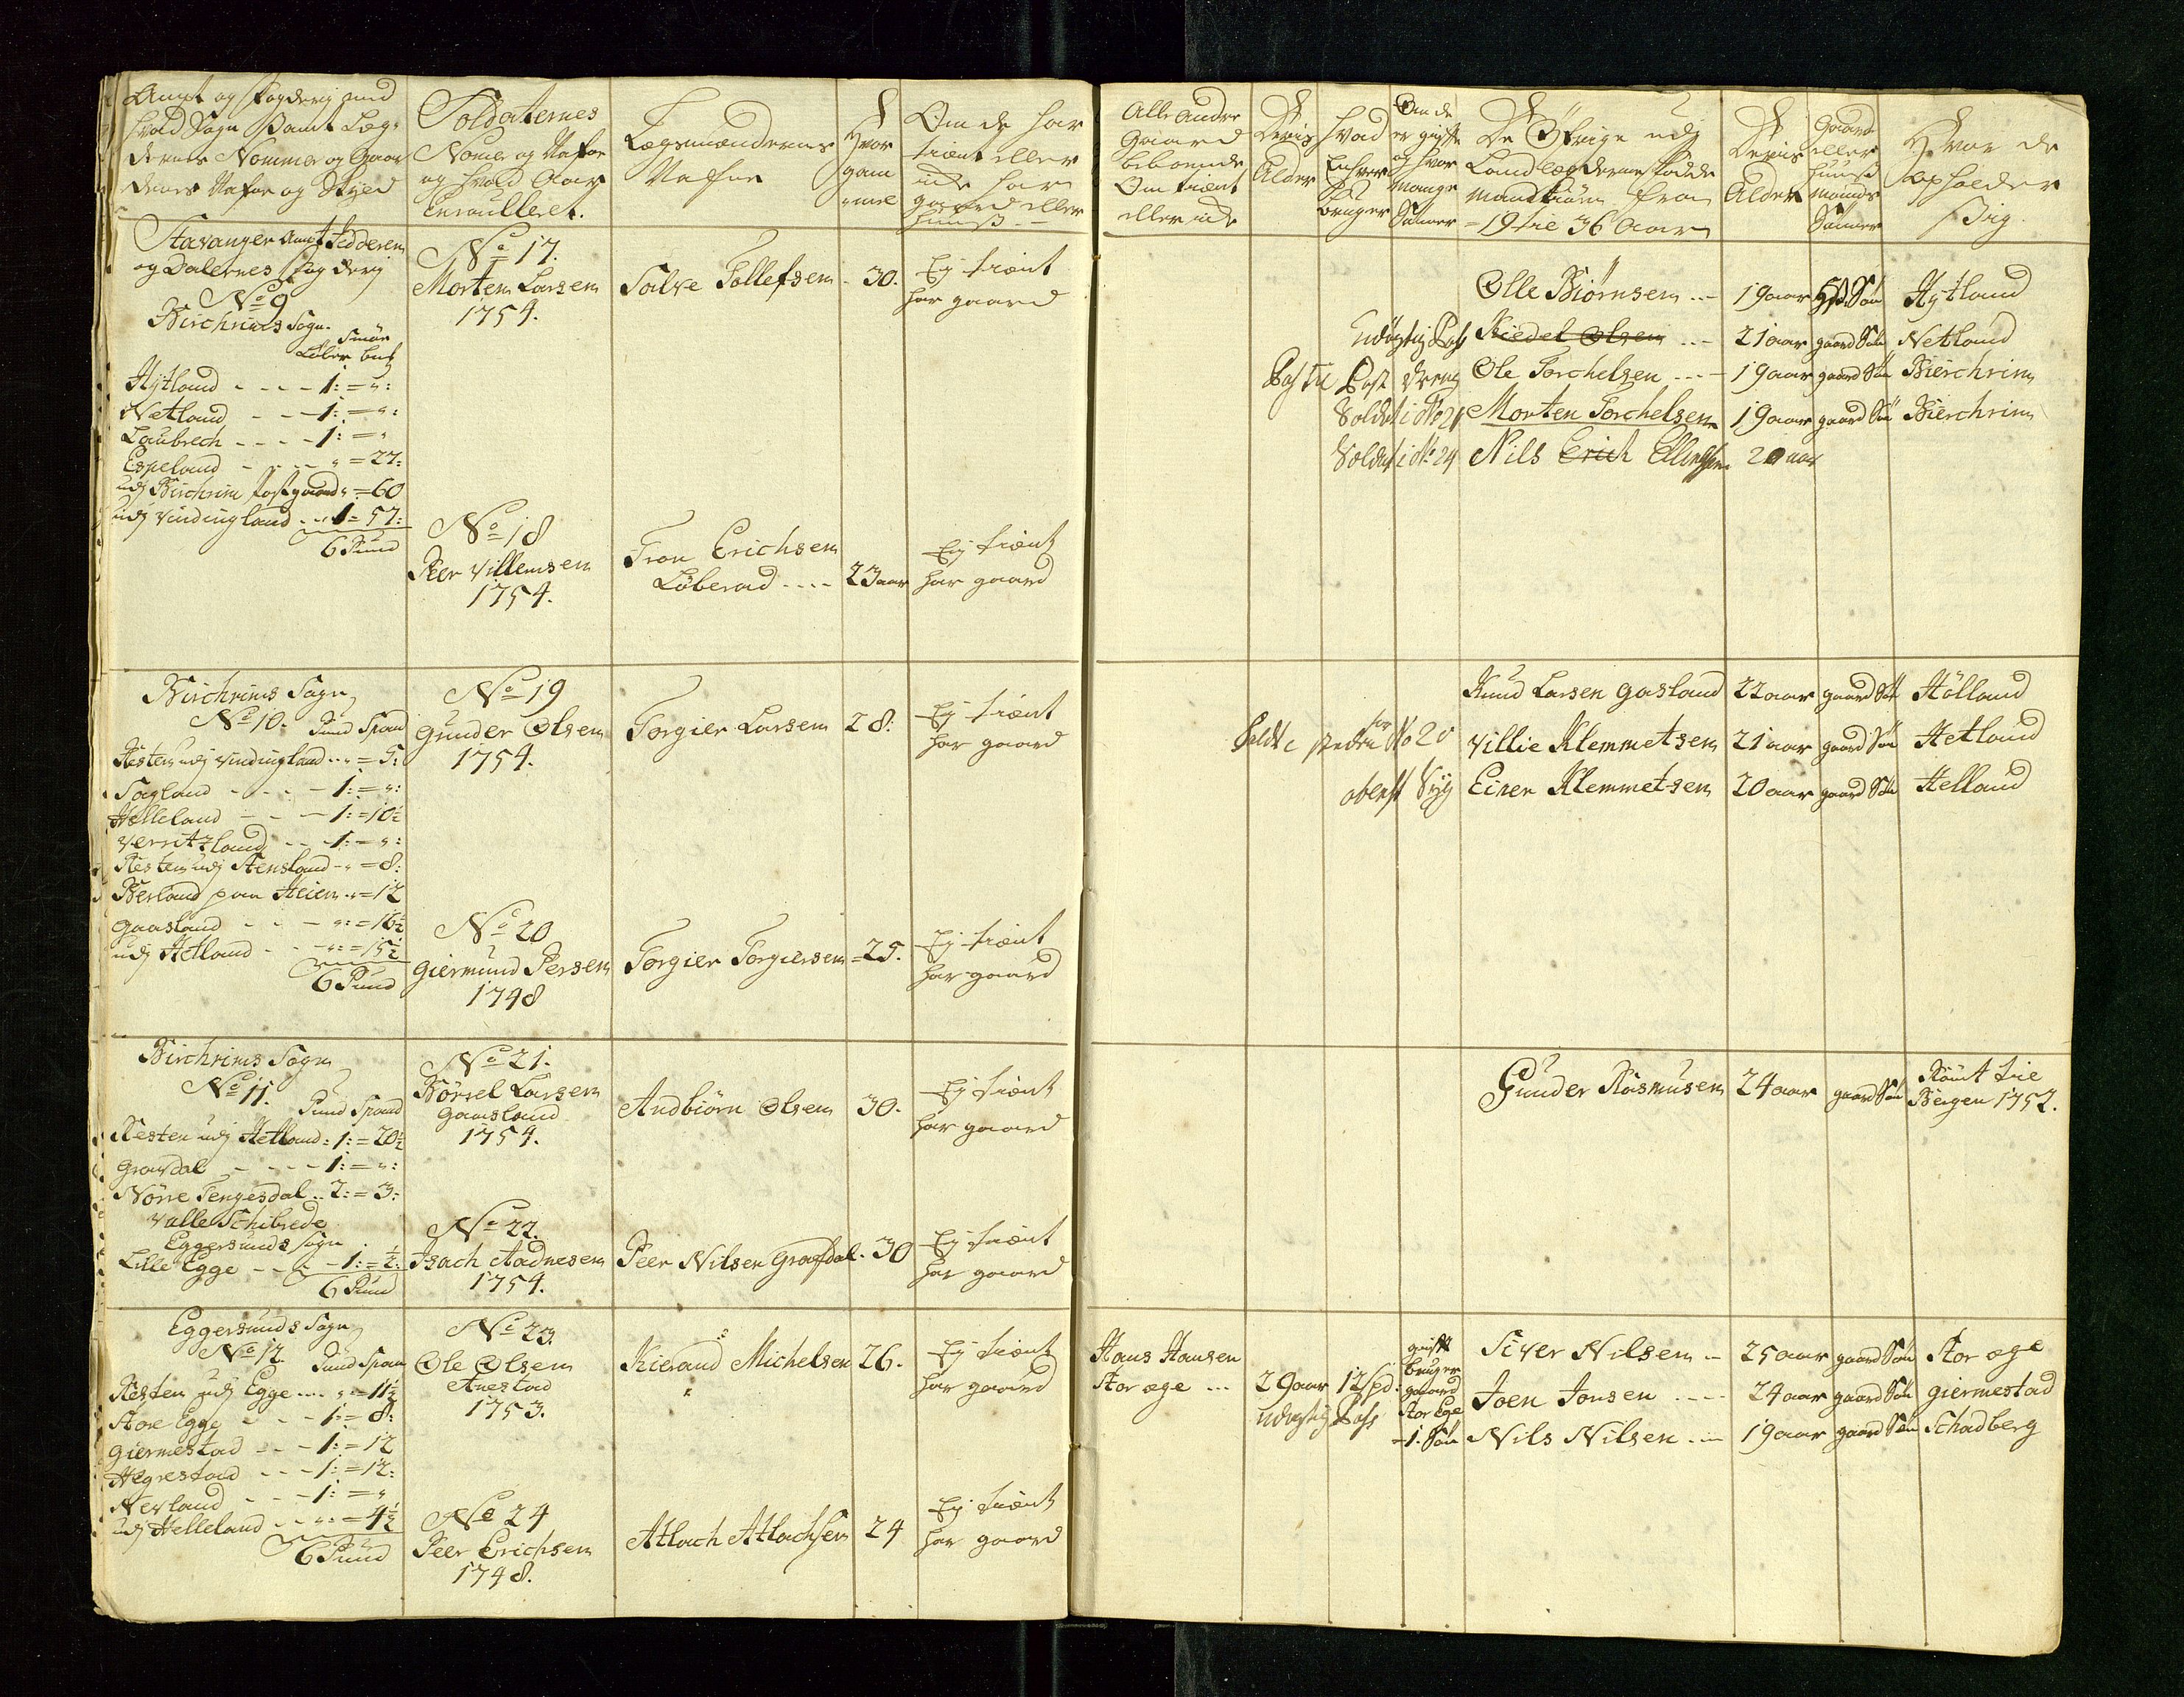 Amt og Fogderj med
hvad Sogn Samt Læg-
dernes Nommer og Gaar
denes Nafne og Skyld
Soldaternes
Nomer og Nafne
og hvad Aar
Enroulleret.
Lægsmændernes
Nafne
Hvor
gam
mel
Om de har
tient eller
icke har
gaard eller
huuss
Alle Andre
Gaard
beboende
Om tient
eller icke
Deris
Alder
hvad
Enhver
bruger
Om de
er gifte
og hvor
mange
Sønner
De Øfrige udj
Landlægderne fødde
Mandkiøn fra
19 tie 36 Aar
Deris
Alder
Gaard
eller
huuss
mands
Sønner
Hvor de
opholder
Sig
Stavanger Amt Jedderen
og Dalernes Fogderj
No 9
Birchrims Sogn
Smør
Løber
Hytland - - - - 1: = ":
Netland - - - 1: = ":
Laubrech - - - - 1: = "
Espeland - - - - " = 27:
udj Birchrim Postgaard " = 60
udj Vindingland - - 1 = 57:
6 Pund
No 17.
Morten Larsen
1754.
Salve Tollefsen - 30.
Ej tient
har gaard
Olle Biørnsen - - 19 aar Søn Hytland
udøgtig Pass Kiedel Olsen - - - 21 aar gaard Søn Netland
Pass til Post dreng Ole Torchelsen - - - 19 aar gaard Søn Bierchrim
Soldat i No 21 Morten Torchelsen 19 aar gaard Søn Bierchrim
Soldat i No 24 Nils Erich Ellingsen 20 aar
No 18
Peer Villemsen
1754.
Tron Erichsen
Løberad - - - - 23 aar
Ej tient
har gaard
Birchrims Sogn
No 10. Pund Spand
Resten udj Vindingland - - " = 5:
Sagland - - - - 1: = ":
Helleland - - - 1: = 10½
Versitzland - - - 1: = ":
Resten udj Stensland - " = 8:
Berland paa Heien " = 12
Gaasland - - - ": = 16½
udj Hetland - - - ": = 15½
6 Pund
No 19
Gunder Olsen
1754.
Torgier Larsen 28.
Ej tient
har gaard
Knud Larsen Gasland 22 aar gaard Søn Hølland
No 20 Villie Klemmetsen 21 aar gaard Søn Hetland
Einer Klemmetsen 20 aar gaard Søn Helland
No 20
Giermund Persen
1748
Torgier Torgiersen - 25.
Ej tient
har gaard
Birchrims Sogn
No 11.
Pund Spand
Resten udj Hetland: 1: = 20½
Gravdal - - - - 1: = ":
Nørre Tengesdal - - 2: = 3:
Valle Schibrede
Eggersunds Sogn
Lille Egge - - - - 1: = ½:
6 Pund
No 21.
Børrel Larsen
Gaasland
1754.
Andbiørn Olsen 30.
Ej tient
har gaard
Gunder Rasmusen 24 aar gaard Søn Rømt tie
Bergen 1752.
No 22.
Isach Aadnesen
1754.
Peer Nilsen Grafdal - 30
Ej tient
har gaard
Eggersunds Sogn
No 12. Pund Span
Resten udj Egge - - - " = 11½
Store Egge - - - 1: = 8:
Giermestad - - - 1: = 12
Hegrestad - - - 1: = 12:
Nevland - - - 1: = "
udj Helleland - - ": = 4½
6 Pund
No 23.
Ole Olsen
Anestad
1753.
Kieland Michelsen 26.
Ej tient
har gaard
Hans Hansen
Stor æge - - - 29 aar 12 spd:
udøgtig Pass
gift
bruger
gaard
Stor Ege
- 1. Søn
Siver Nilsen - 25 aar gaard Søn Stor æge
Joen Jonsen - - - - 24 aar gaard Søn Giermestad
Nils Nilsen - - 19 aar gaard Søn Schadberg
No 24
Peer Erichsen
1748.
Atlach Atlachsen 24
Ej tient
har gaard